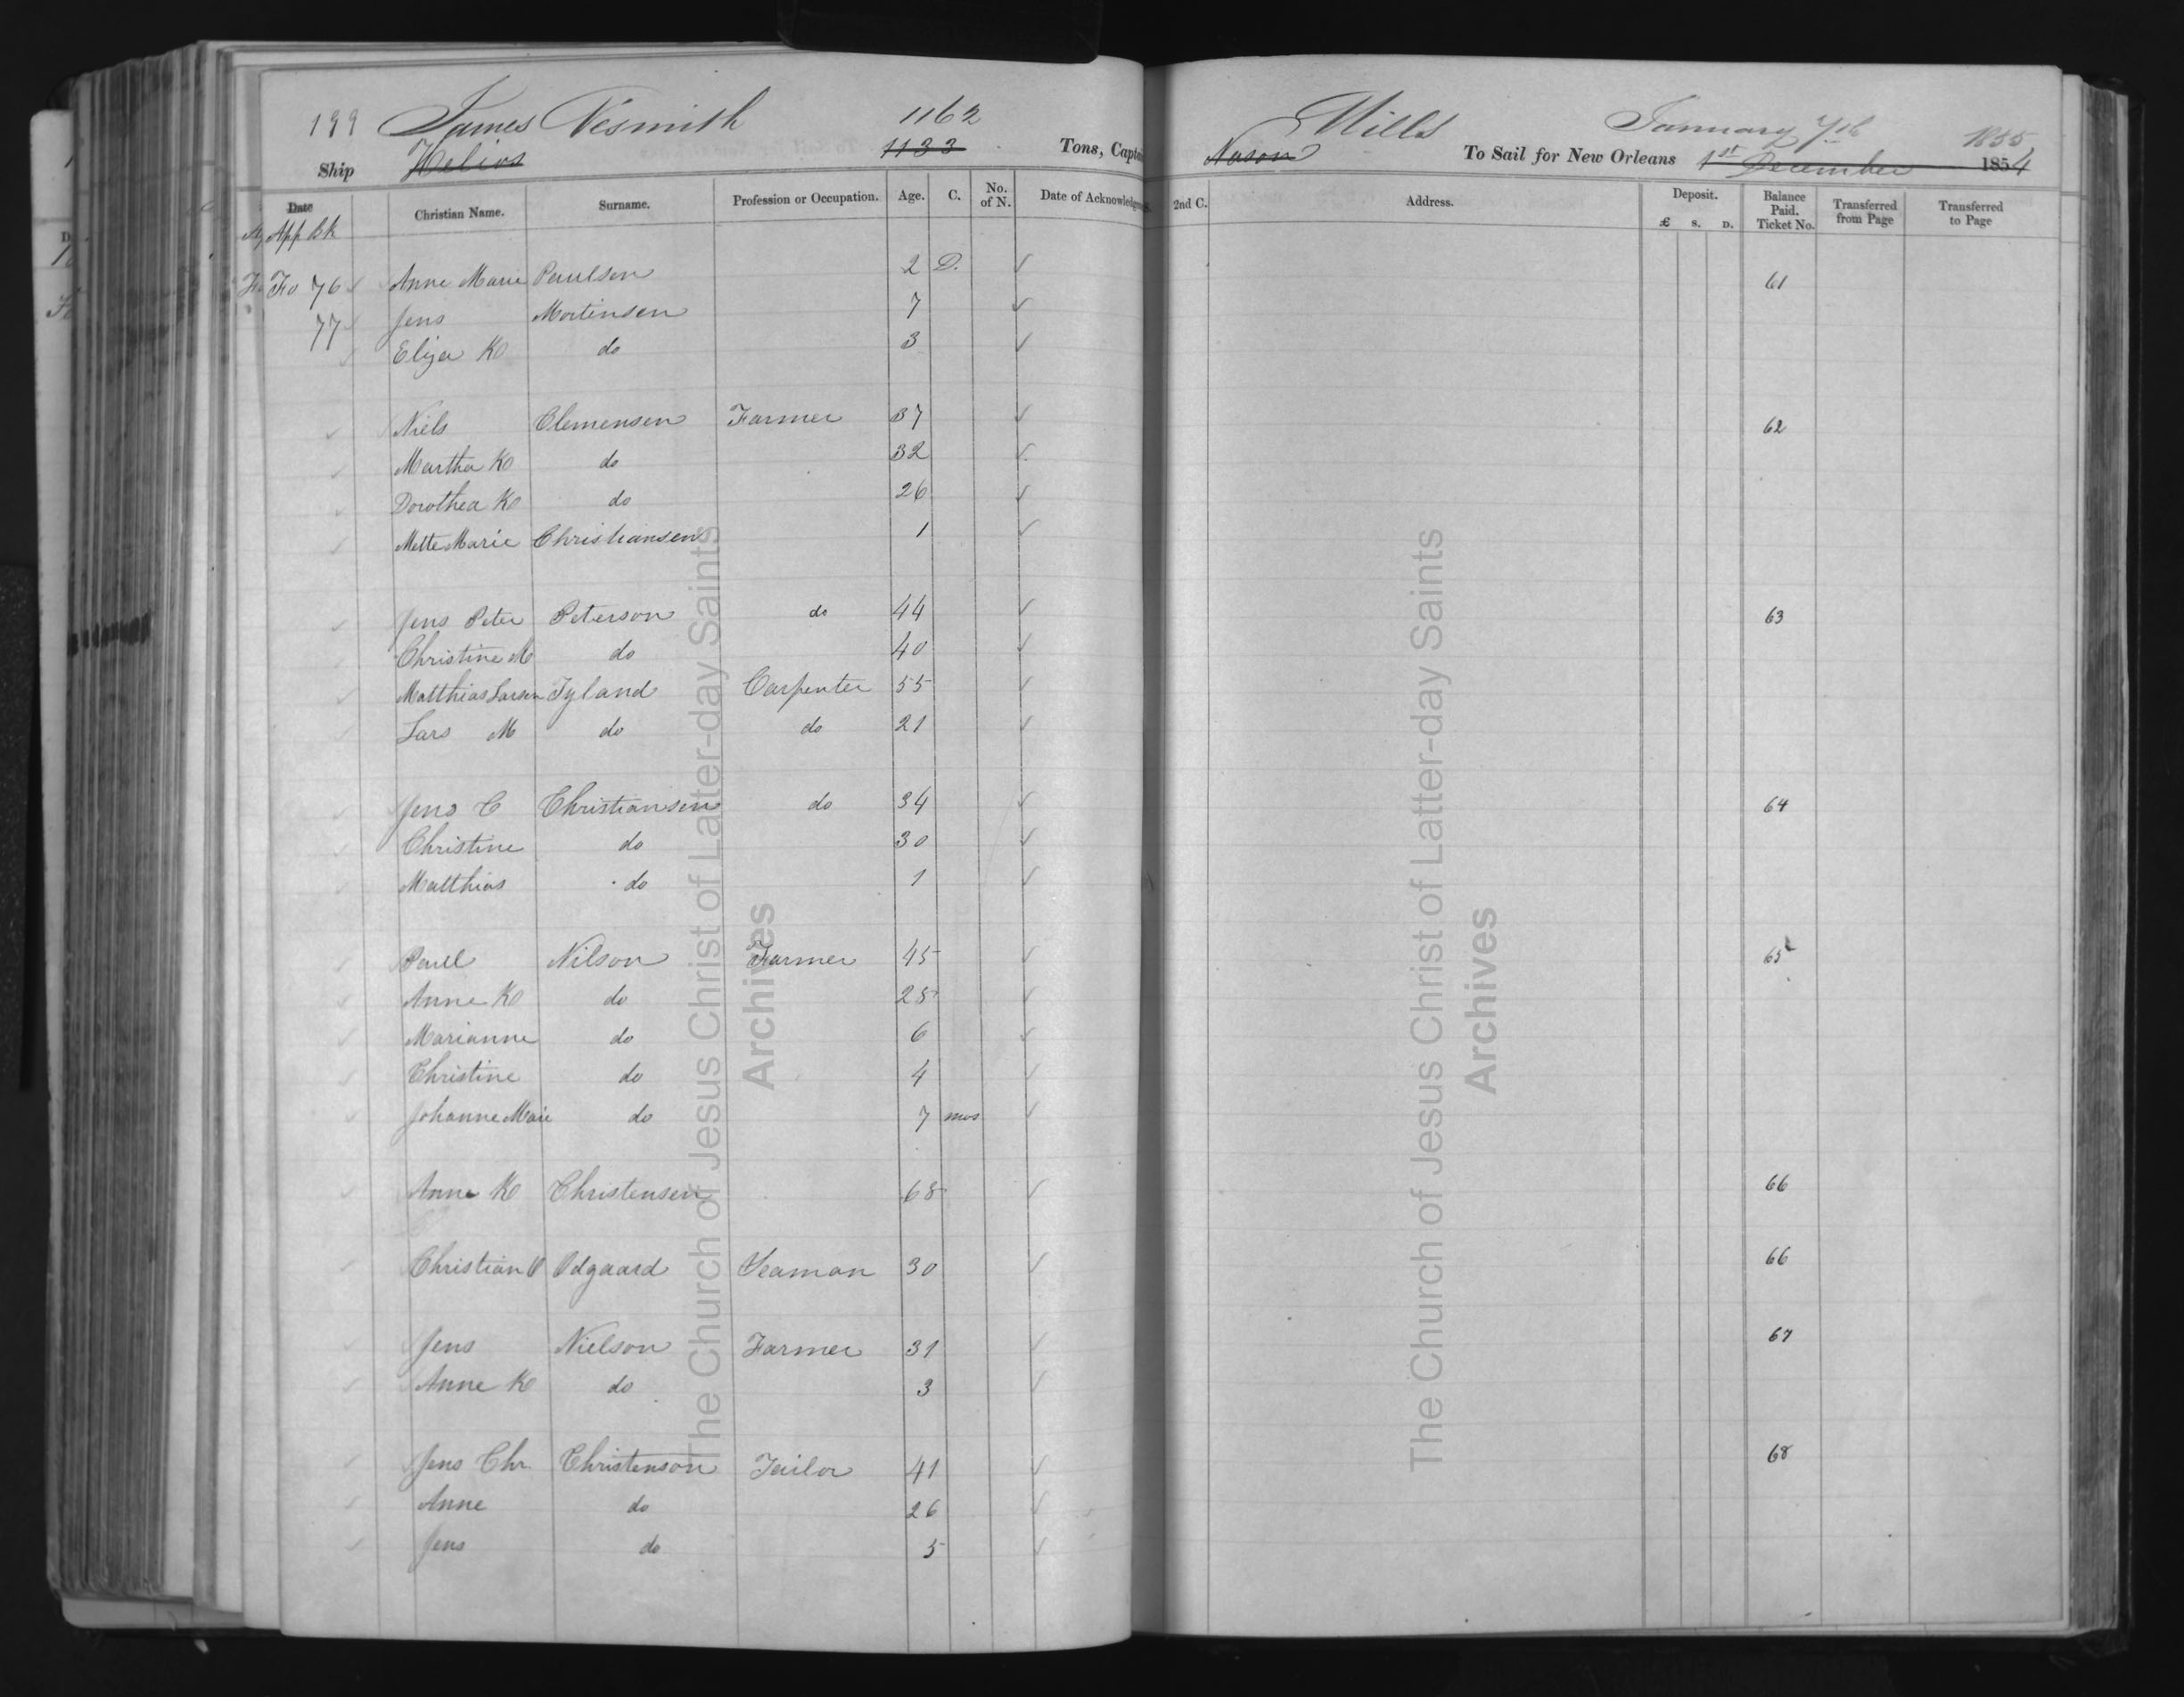 199 James Nesmith 1162 Mills January 7th 1855
Ship Helios 1133 Tons, Captain Nason To Sail for New Orleans 1st December 1854
Date Christian Name. Surname. Profession or Occupation. Age. C. No. of N. Date of Acknowledgment 2nd C. Address. Deposit. £ s. D. Balance Paid. Ticket No. Transferred from Page Transferred to Page
App Bk
Fo 76 Anne Marie Paulson 2 D. 61
77 Jens Mortensen 7
Eliza K do 3
Niels Clemensen Farmer 37 62
Martha K do 32
Dorothea K do 26
Mette Marie Christiansen 1
Jens Peter Peterson do 44 63
Christine M do 40
Matthias Larsen Tyland Carpenter 55
Lars M do do 21
Jens C Christiansen do 34 64
Christine do 30
Matthias do 1
Paul Nilson Farmer 45 65
Anne K do 28
Marianne do 6
Christine do 4
Johanne Marie do 7 mos
Anne K Christensen 68 66
Christian Odgaard Seaman 30 66
Jens Nielson Farmer 31 67
Anne K do 3
Jens Chr Christenson Tailor 41 68
Anne do 26
Jens do 5
The Church of Jesus Christ of Latter-day Saints
Archives
The Church of Jesus Christ of Latter-day Saints
Archives